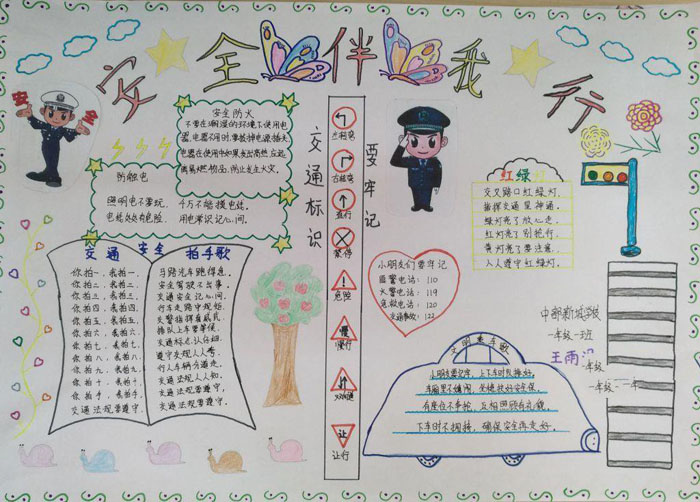 安全伴我行
安 全
安全防火
不要在潮湿的环境下使用电
器,电器不用时,要拔掉电源插头
电器在使用中如果发出高热,应远
离易燃物品,防止发生火灾。
防触电
照明电不要玩, 千万不能摸电线。
电线处处有危险, 用电常识记心间。
交通安全拍手歌
你拍一,我拍一, 马路汽车跑得急。
你拍二,我拍二, 安全驾驶不出事。
你拍三,我拍三, 交通安全记心间。
你拍四,我拍四, 行车走路守规矩。
你拍五,我拍五, 交警指挥真威武
你拍六,我拍六, 排队上车要等候。
你拍七,我拍七, 交通标志认仔细
你拍八,我拍八, 遵守交规人人夸。
你拍九,我拍九, 行人车辆分道走。
你拍十,我拍十, 交通法规人人知。
交通法规要遵守, 交通法规要遵守。
交通标识
要牢记
左转弯
右转弯
直行
禁停
危险
慢行
让
让行
小朋友们要牢记
匪警电话: 110
火警电话: 119
急救电话: 120
交通事故: 122
红绿灯
交叉路口红绿灯,
指挥交通显神通,
绿灯亮了放心走,
红灯亮了别抢行,
黄灯亮了要注意,
人人遵守红绿灯。
文明乘车歌
小朋友要记牢, 上下车时先排好
车厢里不镇闹, 坐稳扶好安全保
有座位不争抢, 互相照顾有礼貌
下车时不拥挤, 确保安全再走好。
中部新城学校
一年级一班
王雨
一年级